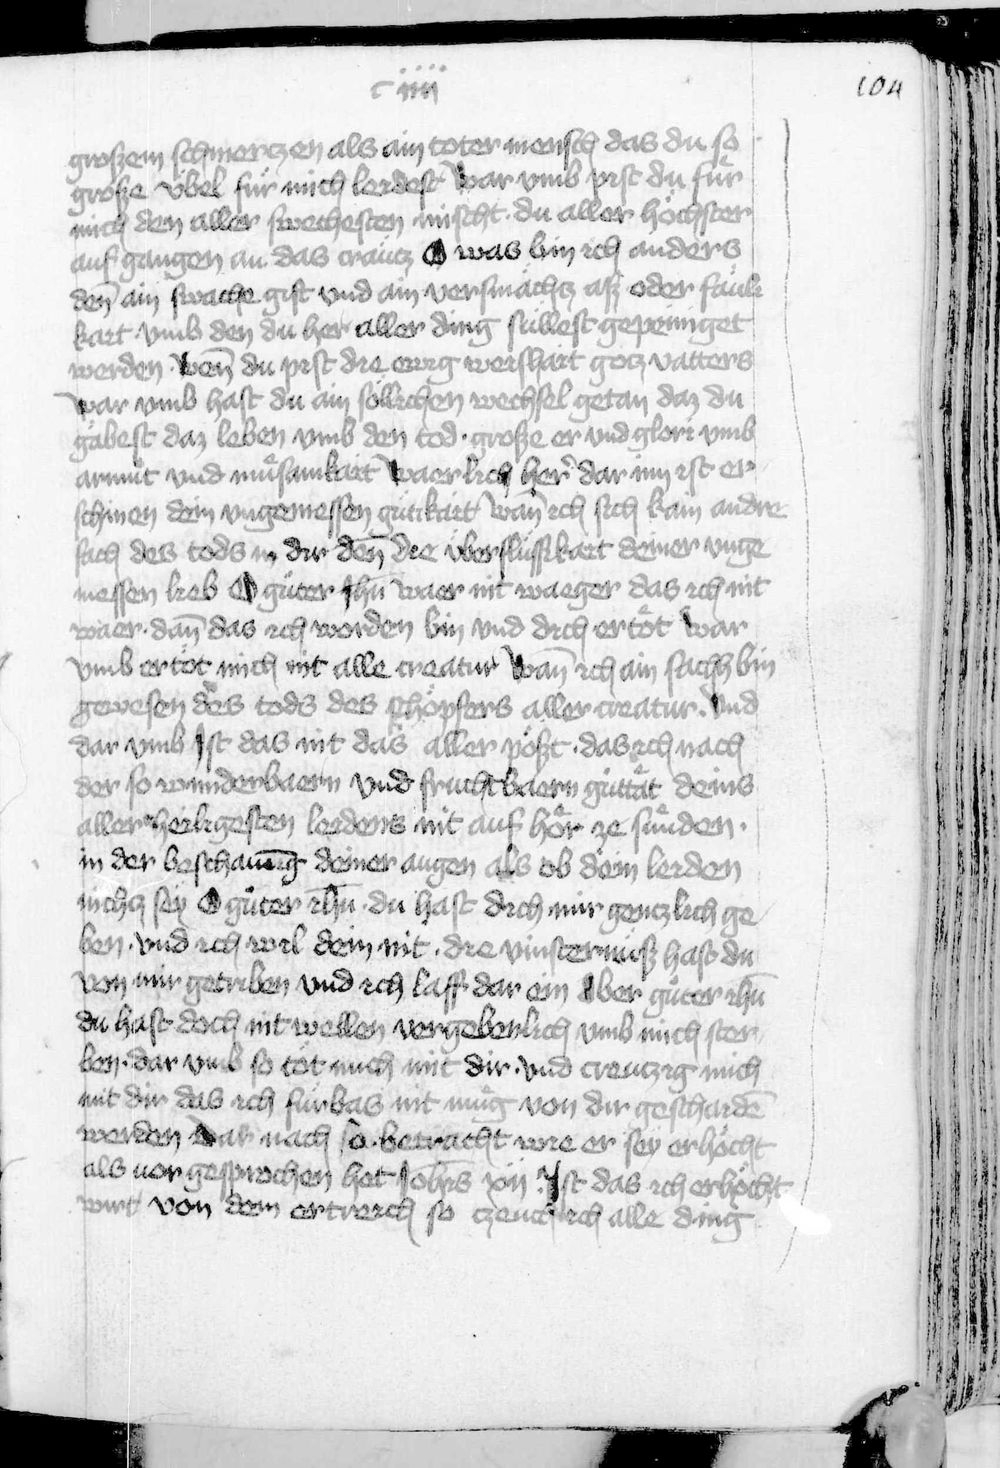 ciiii
104
großem schmertzen als ain toter mensch das du so
große v̈bel fu̓r mich leidest War vmb pist du fu̓r
mich den aller swechesten mischt · du aller höchster
auf gangen an das cräutz O was bin ich anders
den̄ ain swache gist vnd ain versmächtz aß oder fäuli
kait · vmb den du her aller ding sullest gepeiniget
werden · Wen̄ du pist die ewig weishait gotz vatters
War vmb hast du ain söllichen wechsel getan daz du
gäbest daz leben vmb den tod · große er vnd glori vmb
armut vnd mu̓samkait Waerlich her dar inn ist er
schinen dein vngemessen gütikait Wan̄ ich sich kain andre
sach des tods in dir den̄ die überflüssikait deiner vnge
messen lieb O gu̓ter Jhū waer nit waeger das ich nit
waer · dan̄ das ich worden bin vnd dich ertöt War
vmb ertöt mich nit alle creatur Wan̄ ich ain sachh bin
gewesen des tods des schöpfers aller creatur · Vnd
dar vmb Jst das nit das aller pößt · das ich nach
der so wunderbaern vnd fruchtbaern guttät deins
aller heiligesten leidens nit auf hör ze sunden ·
in der beschauu̅g deiner augen als ob dein leiden
nichcz seÿ O gu̓ter ihū · du hast dich mir gentzlich ge
ben · Vnd ich wil dein nit · die vinsternuß hast du
von mir getriben vnd ich laß dar ein Aber gu̓ter ihū
du hast doch nit wellen vergebenlich vmb mich ster
ben · dar vmb so töt mich mit dir · vnd creutzig mich
mit dir das ich fürbas nit mug von dir geschaiden̄
werden Dar nach so betracht wie er seÿ erhöcht
als vor gesprochen het Joh̄is xii · Jst das ich erhöcht
wirt von dem ertreich so czeuch ich alle ding